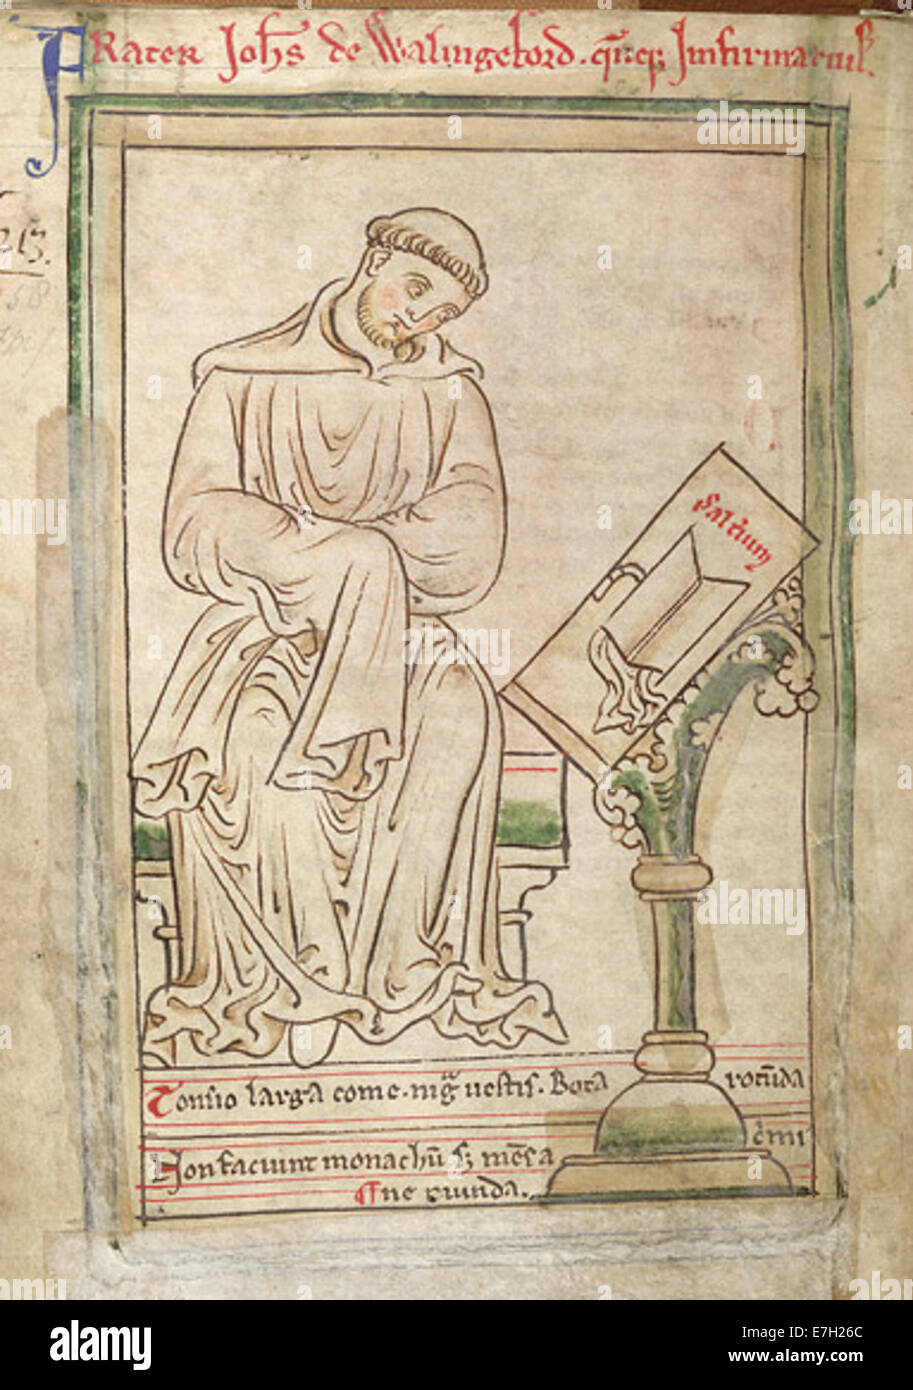 FRATER Joh̄s de Walingeford . q̄nq; Infirmarius.
213.
58
Psalt̄ium
Tonsio larga come . nigͣ uestis . Bota rotūda
Non faciunt monachū s; mēs a c̄mi
¶ne mūnda.
alamy
Image ID: E7H26C
www.alamy.com